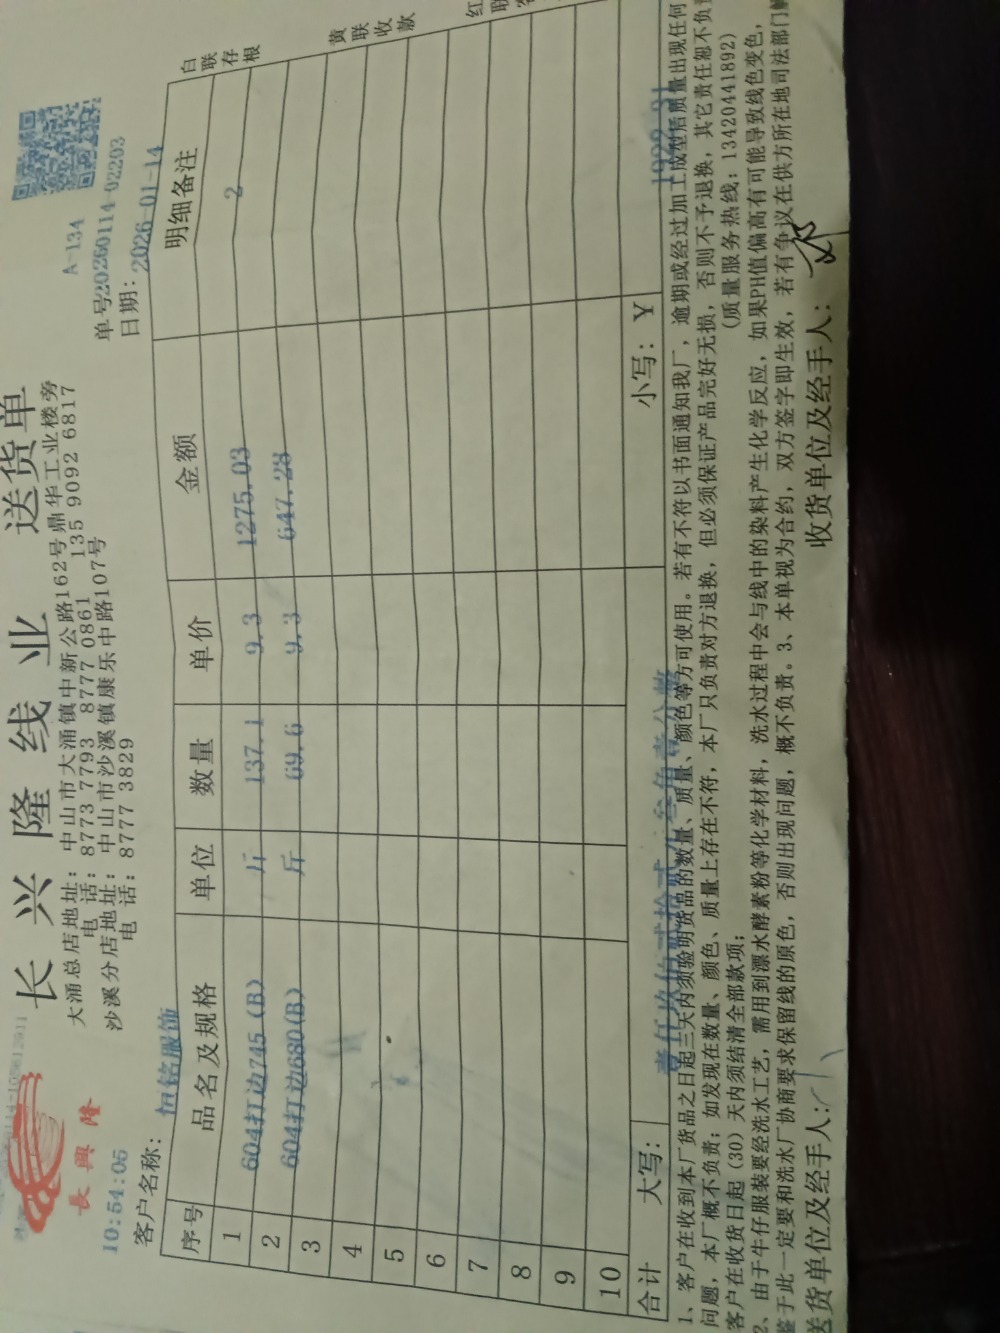 长兴隆线业 送货单
長興隆
A-134
大涌总店地址：中山市大涌镇中新公路162号鼎华工业楼旁
电 话：8773 7793 8777 0861 135 9092 6817
沙溪分店地址：中山市沙溪镇康乐中路107号
电 话：8777 3829
单号20260114-02203
日期：2026-01-14
10:54:05
客户名称：恒铭服饰
序号 品名及规格 单位 数量 单价 金额 明细备注
1 604打边745(B) 斤 137.1 9.3 1275.03 2
2 604打边680(B) 斤 69.6 9.3 647.28
3
4
5
6
7
8
9
10
合计 大写：壹仟玖佰贰拾贰元叁角壹分整 小写：￥1922.31
白联存根
黄联收款
红联
1、客户在收到本厂货品之日起三天内须验明货品的数量、质量、颜色等方可使用。若有不符以书面通知我厂，逾期或经过加工成型后质量出现任何
问题，本厂概不负责；如发现在数量、颜色、质量上存在不符，本厂只负责对方退换，但必须保证产品完好无损，否则不予退换，其它责任恕不负责
客户在收货日起（30）天内须结清全部款项； (质量服务热线：13420441892)
2、由于牛仔服装要经洗水工艺，需用到漂水酵素粉等化学材料，洗水过程中会与线中的染料产生化学反应，如果PH值偏高有可能导致线色变色，
鉴于此一定要和洗水厂协商要求保留线的原色，否则出现问题，概不负责。3、本单视为合约，双方签字即生效，若有争议在供方所在地司法部门解
送货单位及经手人： 收货单位及经手人：邓